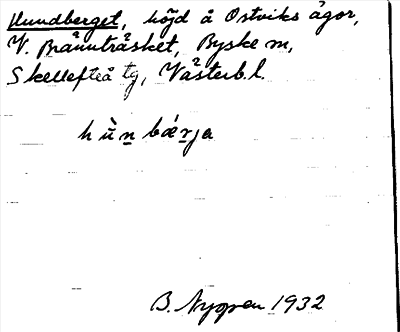 Hundberget, höjd å Ostviks ägor,
V. Brännträsket, Byske sn,
Skellefteå tg, Västerb. l.
hùn bǽrja
B. Nygren 1932